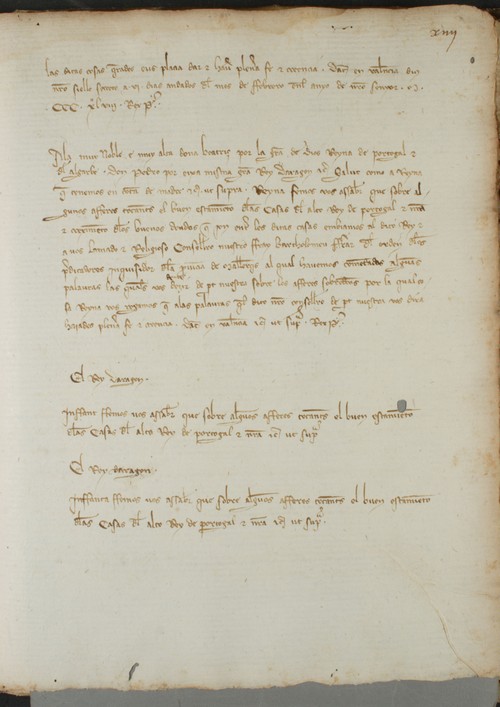 xiiij
las ditas cosas quel vos plaçia dar e haver plena fe e creença. Dat en valencia diu
nro siello secreto a vj dias andados del mes de Febrero del anyo de nro Senyor. M.
CCC. xl viii. Rex P.
Ala muy Noble e muy alta dona beatriz por la gra de dios Reyna de portogal e
del algarbe. Don Pedro por essa misma gra Rey Daragon etc Salut como a Reyna
q tenemos en cuenta de madre etc ut supra. Reyna femos vos assaber que sobre al
gunos afferes tocantes el buen estamiento delas Casas del alto Rey de portogal e nra
e crecimiento delos buenos deudos q son entre las ditas casas embiamos al dito Rey e
a vos lonrado e Religioso Consellero nuestro fray Bartholomeu del orden delos
predicadores inquisidor en la provincia de mallorqs al qual havemos comendadas algunas
palauras las quales vos deue dezir de part nuestra sobre los afferes sobreditos por la qual cosa
Reyna vos rogamos q alas palauras qel dito nro consellero de part nuestra vos dira
hayades plena fe e creença. Dat en valencia etc ut supra. Rex P.
El Rey Daragon.
Inffant femos vos assaber que sobre algunos afferes tocantes el buen estamiento
delas Casas del alto Rey de portogal e nra etc ut supra
El Rey daragon.
Inffanta femos vos assaber que sobre algunos afferes tocantes el buen estamiento
delas Casas del alto Rey de portogal e nra etc ut supra.